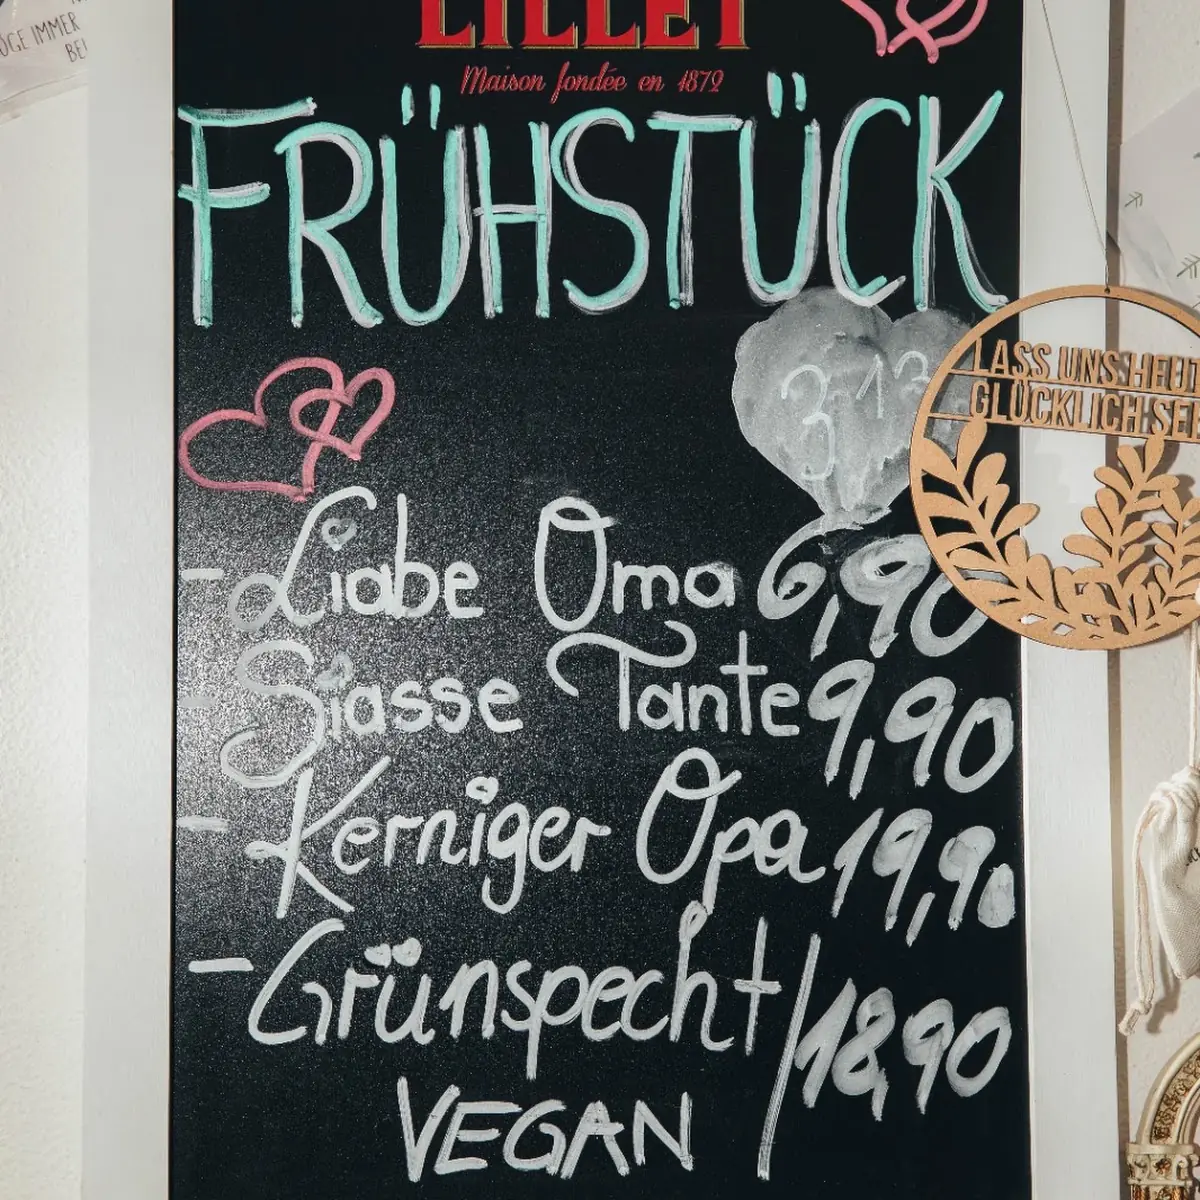 LILLET
Maison fondée en 1872
FRÜHSTÜCK
3,13
- Liabe Oma 6,90
- Siasse Tante 9,90
- Kerniger Opa 19,90
- Grünspecht / 18,90
VEGAN
LASS UNS HEUT
GLÜCKLICH SE
ÖGE IMMER
BE